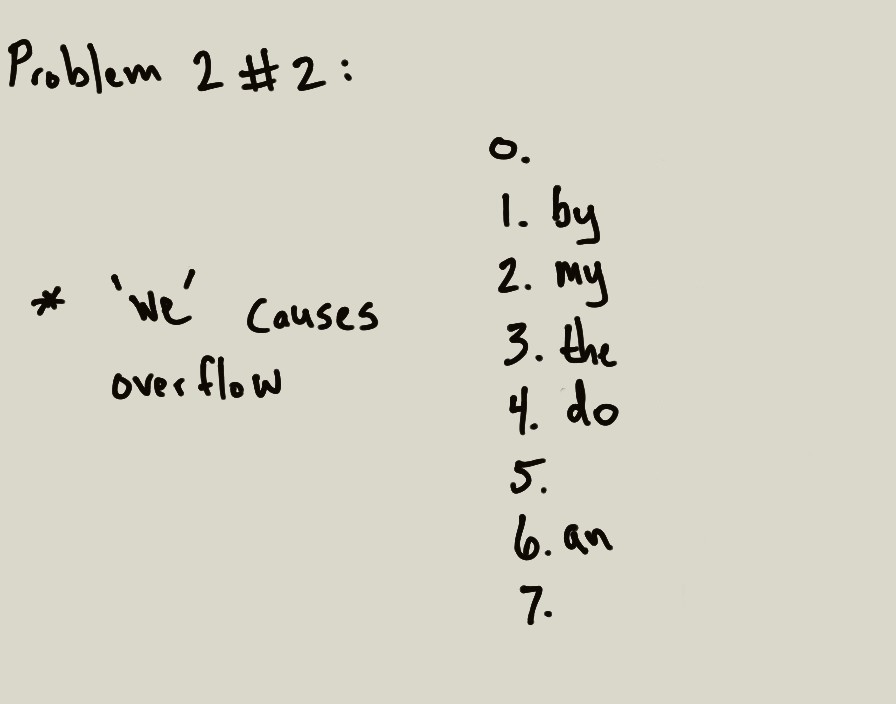 Problem 2 #2:
* 'we' causes
overflow
0.
1. by
2. my
3. the
4. do
5.
6. an
7.